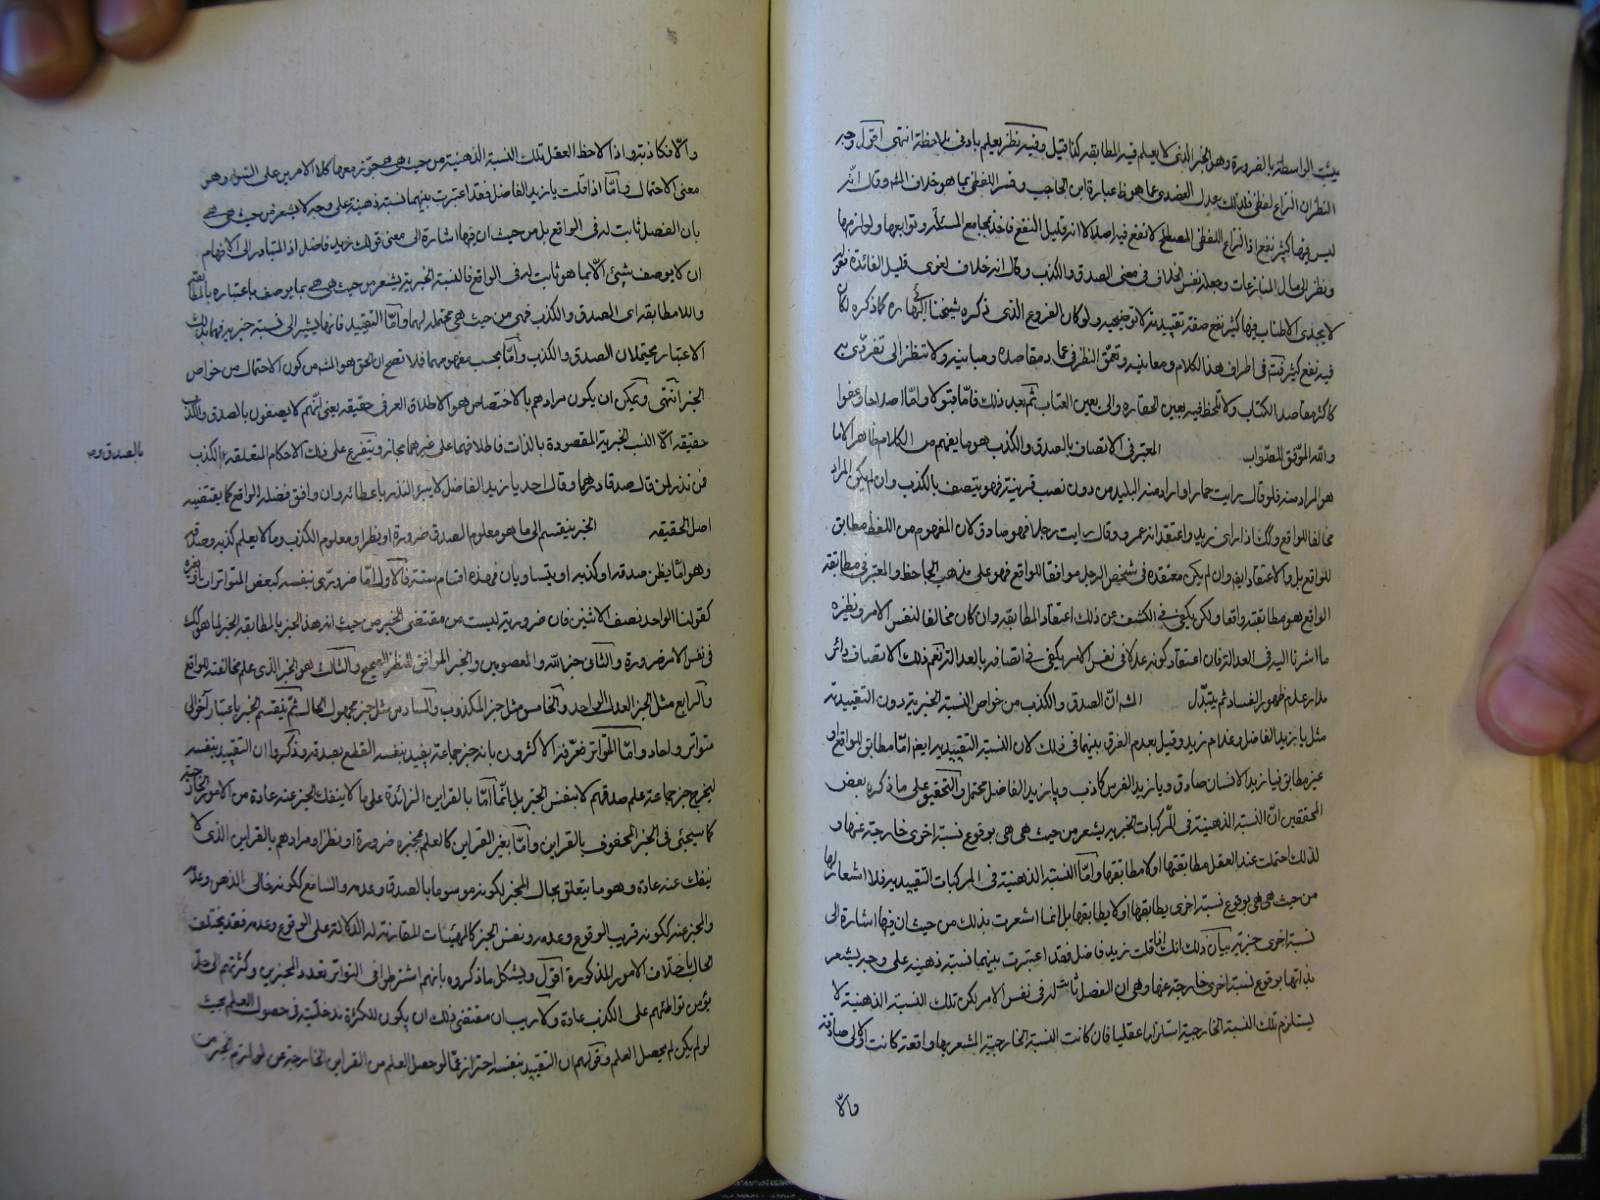 يثبت الواسطة بالضرورة وهو الخبر الذى لا يعلم فيه المطابقة كذا قيل وفيه نظر يعلم بادنى ملاحظة انتهى اقول وجه
النظر ان النزاع لفظى فلذلك عدل العضدى عما هو ظ عبارة ابن الحاجب وفسر اللفظى بما هو خلاف وقال انه
ليس فيها كثير نفع اذ النزاع اللفظى المصطلح لا نفع فيه اصلا لا انه قليل النفع
ونظر الى مال المنازعات وجعله نفس الخلاف فى معنى الصدق والكذب وقال انه خلاف لغوى قليل الفائدة
لا يجدى الاطناب فيها كثير نفع صفة تقييدية لا توضيحية ولو كان الفروع الذى ذكره شيخنا البهائى ره كما ذكره لكان
فيه نفع كثير فى اطراف هذا الكلام ومعانيه وتعمق النظر فى مقاصده ومبانيه ولا تنظر الى تفردى به
كاكثر مقاصد الكتاب ولا تلحظ فيه بعين الحقارة ولا بعين العتاب ثم بعد ذلك فاما قبولا واما اصلاحا وعفوا
والله الموفق للصواب المعتبر فى الاتصاف بالصدق والكذب هو ما يفهم من الكلام ظاهرا لا ما
هو المراد منه فلو قال رايت حمارا واراد منه البليد من دون نصب قرينة فهو يتصف بالكذب وان لم يكن المراد
مخالفا للواقع وكك اذا راى زيدا واعتقد انه عمرو وقال رايت رجلا فهو صادق لان المفهوم من اللفظ مطابق
للواقع بل ولاعتقاد ايضا وان لم يكن معتقده فى شخص الرجل موافقا للواقع فهو على مذهب الجاحظ والمعتبر فى مطابقة
الواقع هو مطابقته واقعا ولكن يكفى فى الكشف عن ذلك اعتقاد المطابقة وان كان مخالفا لنفس الامر ونظيره
ما اشرنا اليه فى العدالة فان اعتقاد كونه عدلا فى نفس الامر يكفى فى اتصافه بالعدالة نعم ذلك الاتصاف دائر
مدار عدم ظهور الفساد ثم يتبدل المشهور ان الصدق والكذب من خواص النسبة الخبرية دون التقييدية
مثل يا زيد الفاضل وغلام زيد وقيل بعدم الفرق بينهما فى ذلك لان النسبة التقييدية ايضا اما مطابق للواقع او
غير مطابق فيا زيد الانسان صادق ويا زيد الفرس كاذب ويا زيد الفاضل محتمل والتحقيق على ما ذكره بعض
المحققين ان النسبة الذهنية فى المركبات الخبرية يشعر من حيث هى هى بوقوع نسبة اخرى خارجة عنها و
لذلك احتملت عند العقل مطابقتها او لا مطابقتها واما النسبة الذهنية فى المركبات التقييدية فلا اشعار لها
من حيث هى هى بوقوع نسبة اخرى يطابقها او لا يطابقها بل انما اشعرت بذلك من حيث ان فيها اشارة الى
نسبة اخرى خبرية بيان ذلك انك اذا قلت زيد فاضل فقد اعتبرت بينهما نسبة ذهنية على وجه يشعر
بذاتها بوقوع نسبة اخرى خارجة عنها وهى ان الفضل ثابت له فى نفس الامر لكن تلك النسبة الذهنية لا
يستلزم تلك النسبة الخارجية استلزاما عقليا فان كانت النسبة الخارجية المشعر بها واقعة كانت الاولى صادقة
والا
والا فكاذبة واذا لاحظ العقل تلك النسبة الذهنية من حيث هى هى جوز معها كلا الامرين على السواء وهو
معنى الاحتمال واما اذا قلت يا زيد الفاضل فقد اعتبرت بينهما نسبة ذهنية على وجه لا يشعر من حيث هى هى
بان الفضل ثابت له فى الواقع بل من حيث ان فيها اشارة الى معنى قولك زيد فاضل اذ المتبادر الى الافهام
ان لا يوصف شيئ الا بما هو ثابت له فى الواقع فالنسبة الخبرية يشعر من حيث هى هى بما يوصف باعتباره بالمطابقة
واللامطابقة اى الصدق والكذب فهى من حيث هى محتملة لهما واما التقييدية فانها يشير الى نسبة خبرية فهما بذلك
الاعتبار يحتملان الصدق والكذب واما بحسب مفهومهما فلا فصح ان الحق هو المشهور من كون الاحتمال من خواص
الخبر انتهى ويمكن ان يكون مرادهم بالاختصاص هو الاطلاق العرفى حقيقة يعنى انهم لا يصفون بالصدق والكذب
حقيقة الا النسب الخبرية المقصودة بالذات فاطلاقهما على غيرهما مجاز ويتفرع على ذلك الاحكام المتعلقة الكذب
بالصدق و
فمن نذر لمن قال صدقا درهما وقال احد يا زيد الفاضل لا يبرء النذر باعطائه وان وافق فضله الواقع كما يقتضيه
اصل الحقيقة الخبر ينقسم الى ما هو معلوم الصدق ضرورة او نظرا ومعلوم الكذب وما لا يعلم كذبه وصدقه
وهو اما يظن صدقه او كذبه او يتساويان فهذه اقسام ستة فالاول اما ضرورى بنفسه كبعض المتواترات او بغيره
كقولنا الواحد نصف الاثنين فان ضروريته ليست من مقتضى الخبر من حيث انه هذا الخبر بل لمطابقة الخبر لما هو كك
فى نفس الامر ضرورة والثانى خبر الله والمعصومين والخبر الموافق للنظر الصحيح والثالث هو الخبر الذى علم مخالفته للواقع
والرابع مثل الخبر العدل الواحد والخامس مثل خبر الكذوب والسادس مثل خبر مجهول الحال ثم ينقسم الخبر باعتبار آخر الى
متواتر واحاد واما المتواتر فعرفه الاكثرون بانه خبر جماعة يفيد بنفسه القطع بصدقه وذكروا ان التقييد بنفسه
ليخرج خبر جماعة علم صدقهم لا بنفس الخبر بل اما بالقراين الزائدة على ما لا ينفك الخبر عنه عادة من الامور الخارجة
كما سيجيئى فى الخبر المحفوف بالقراين واما بغير القراين كالعلم بخبره ضرورة او نظرا ومرادهم بالقراين الذى لا
ينفك عنه عادة وهو ما يتعلق بحال المخبر لكونه موسوما بالصدق وعدمه والسامع لكونه خالى الذهن وعدمه
والمخبر عنه لكونه قريب الوقوع وعدمه ونفس الخبر كالهيئات المقارنة له الدلالة على الوقوع وعدمه فقد يختلف
الحال باختلاف الامور المذكورة اقول ويشكل ما ذكروه بانهم اشترطوا فى التواتر تعدد المخبرين وكثرتهم الى حد
يؤمن تواطئهم على الكذب عادة ولا ريب ان مقتضى ذلك ان يكون للكثرة مدخلية فى حصول العلم بحيث
لو لم يكن لم يحصل العلم وقولهم ان التقييد بنفسه احتراز عما لو حصل العلم من القراين الخارجة عن لوازم الخبر